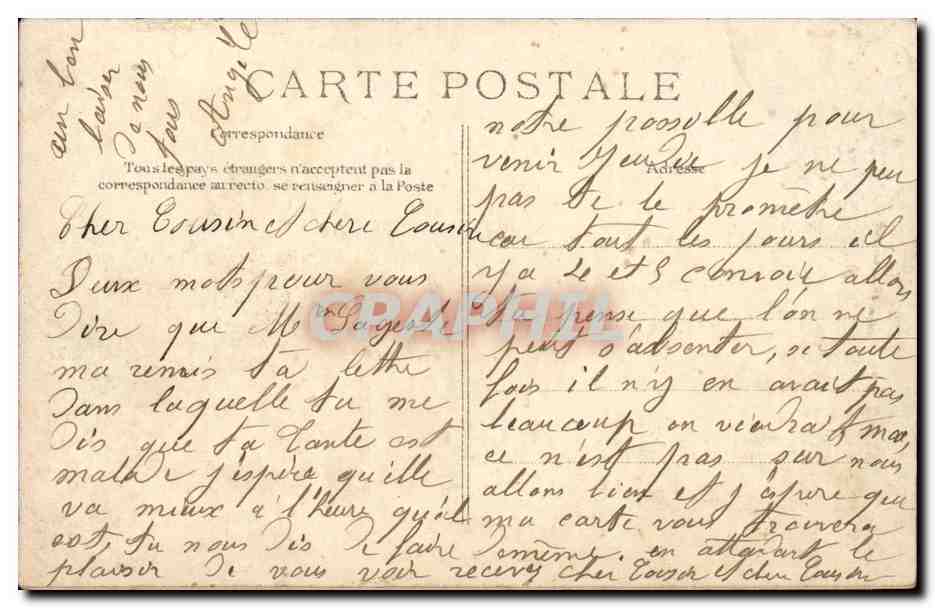 CARTE POSTALE
Correspondance
Tous les pays étrangers n'acceptent pas la
correspondance au recto, se renseigner à la Poste
Adresse
Cher Cousin et chere Cousine
Deux mots pour vous
dire que Mme
ma remis ta lettre
dans laquelle tu me
dis que ta tante est
malade j'espère qu'elle
va mieux a l'heure qu'il
est, tu nous dis de faire
notre possible pour
venir Jeudi je ne peu
pas te le promètre
car tout les jours il
y a 4 et 5 convoie allors
tu pense que l'on ne
peut s'absenter, si toute
fois il n'y en avait pas
beaucoup on viendrat mais
ce n'est pas sur nous
allons bien et j'espere que
ma carte vous trouvera
de même. en attendant le
plaisir de vous voir recevez cher Cousin et chere Cousine
un bon
baiser
de nous
tous
Angèle
CARPHIL